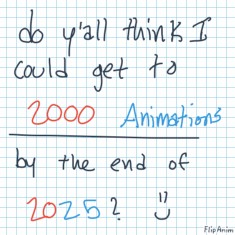 do y'all think I
could get to
2000 Animations
by the end of
2025? :)
FlipAnim